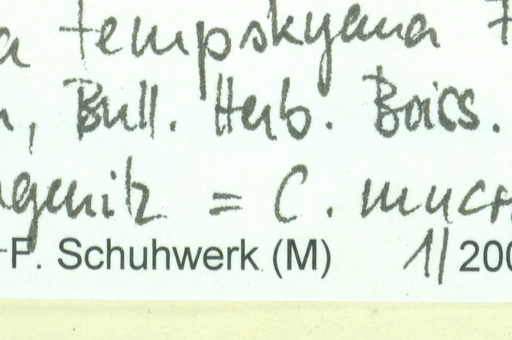 a tempskyana F
, Bull. Herb. Boiss.
genitz = C. mucr
F. Schuhwerk (M) 1/200